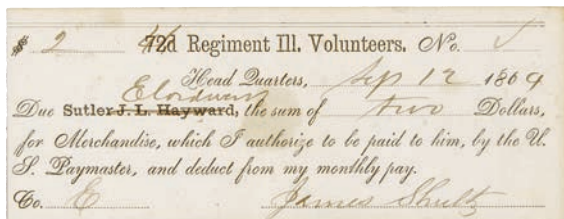 $ 2 72d Regiment Ill. Volunteers. No.
Head Quarters, Sep 12 1864
Due Sutler J. L. Hayward, the sum of two Dollars,
for Merchandise, which I authorize to be paid to him, by the U.
S. Paymaster, and deduct from my monthly pay.
Co. E James Shultz